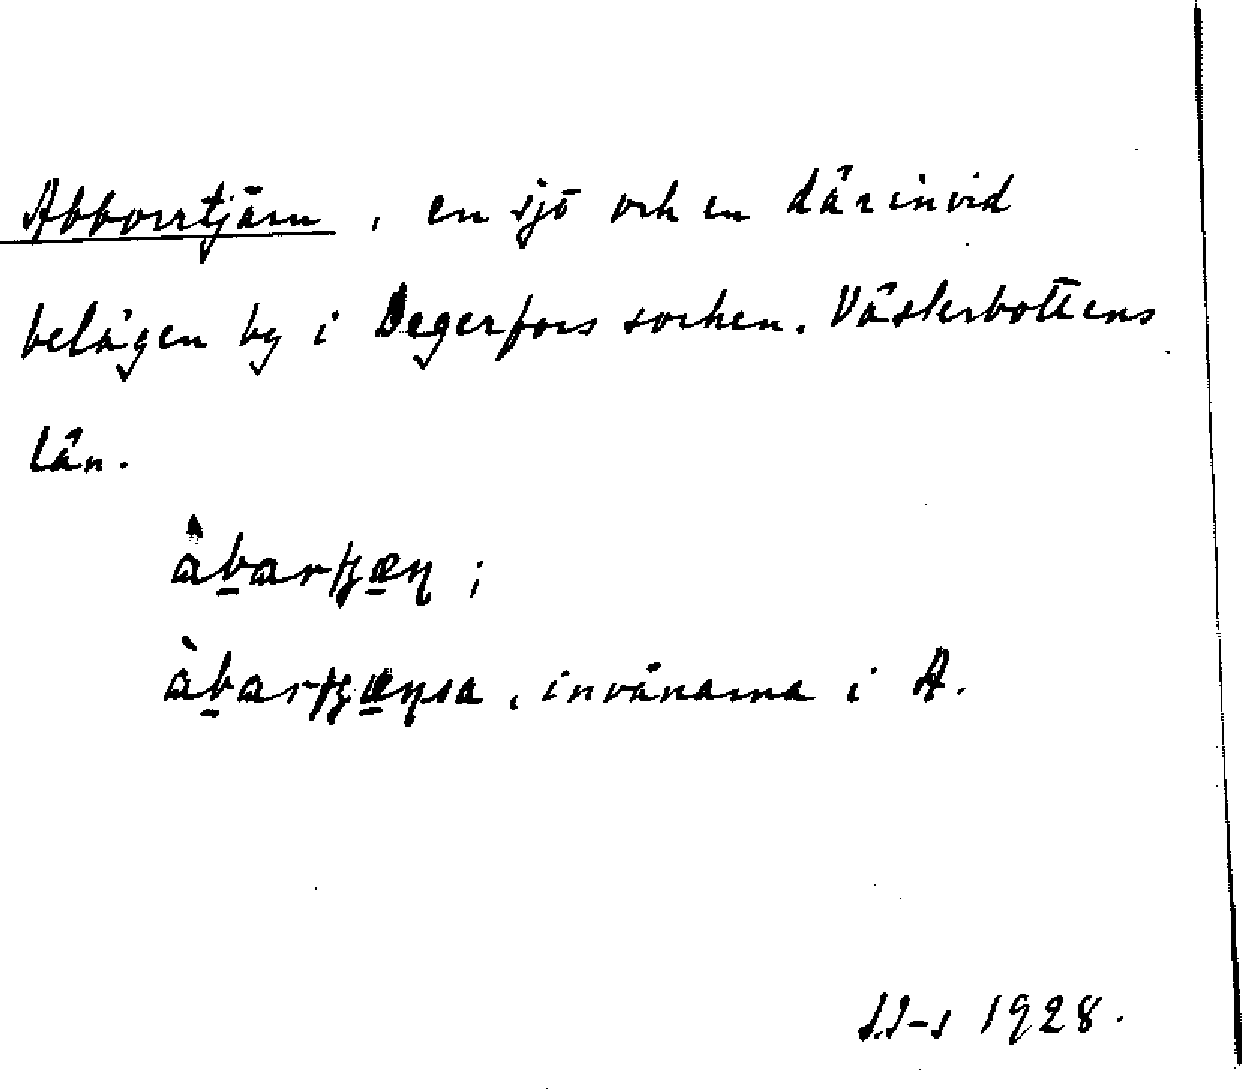 Abborrtjärn, en sjö och en därinvid
belägen by i Degerfors socken. Västerbottens
län.
invånarna i A.
1928.